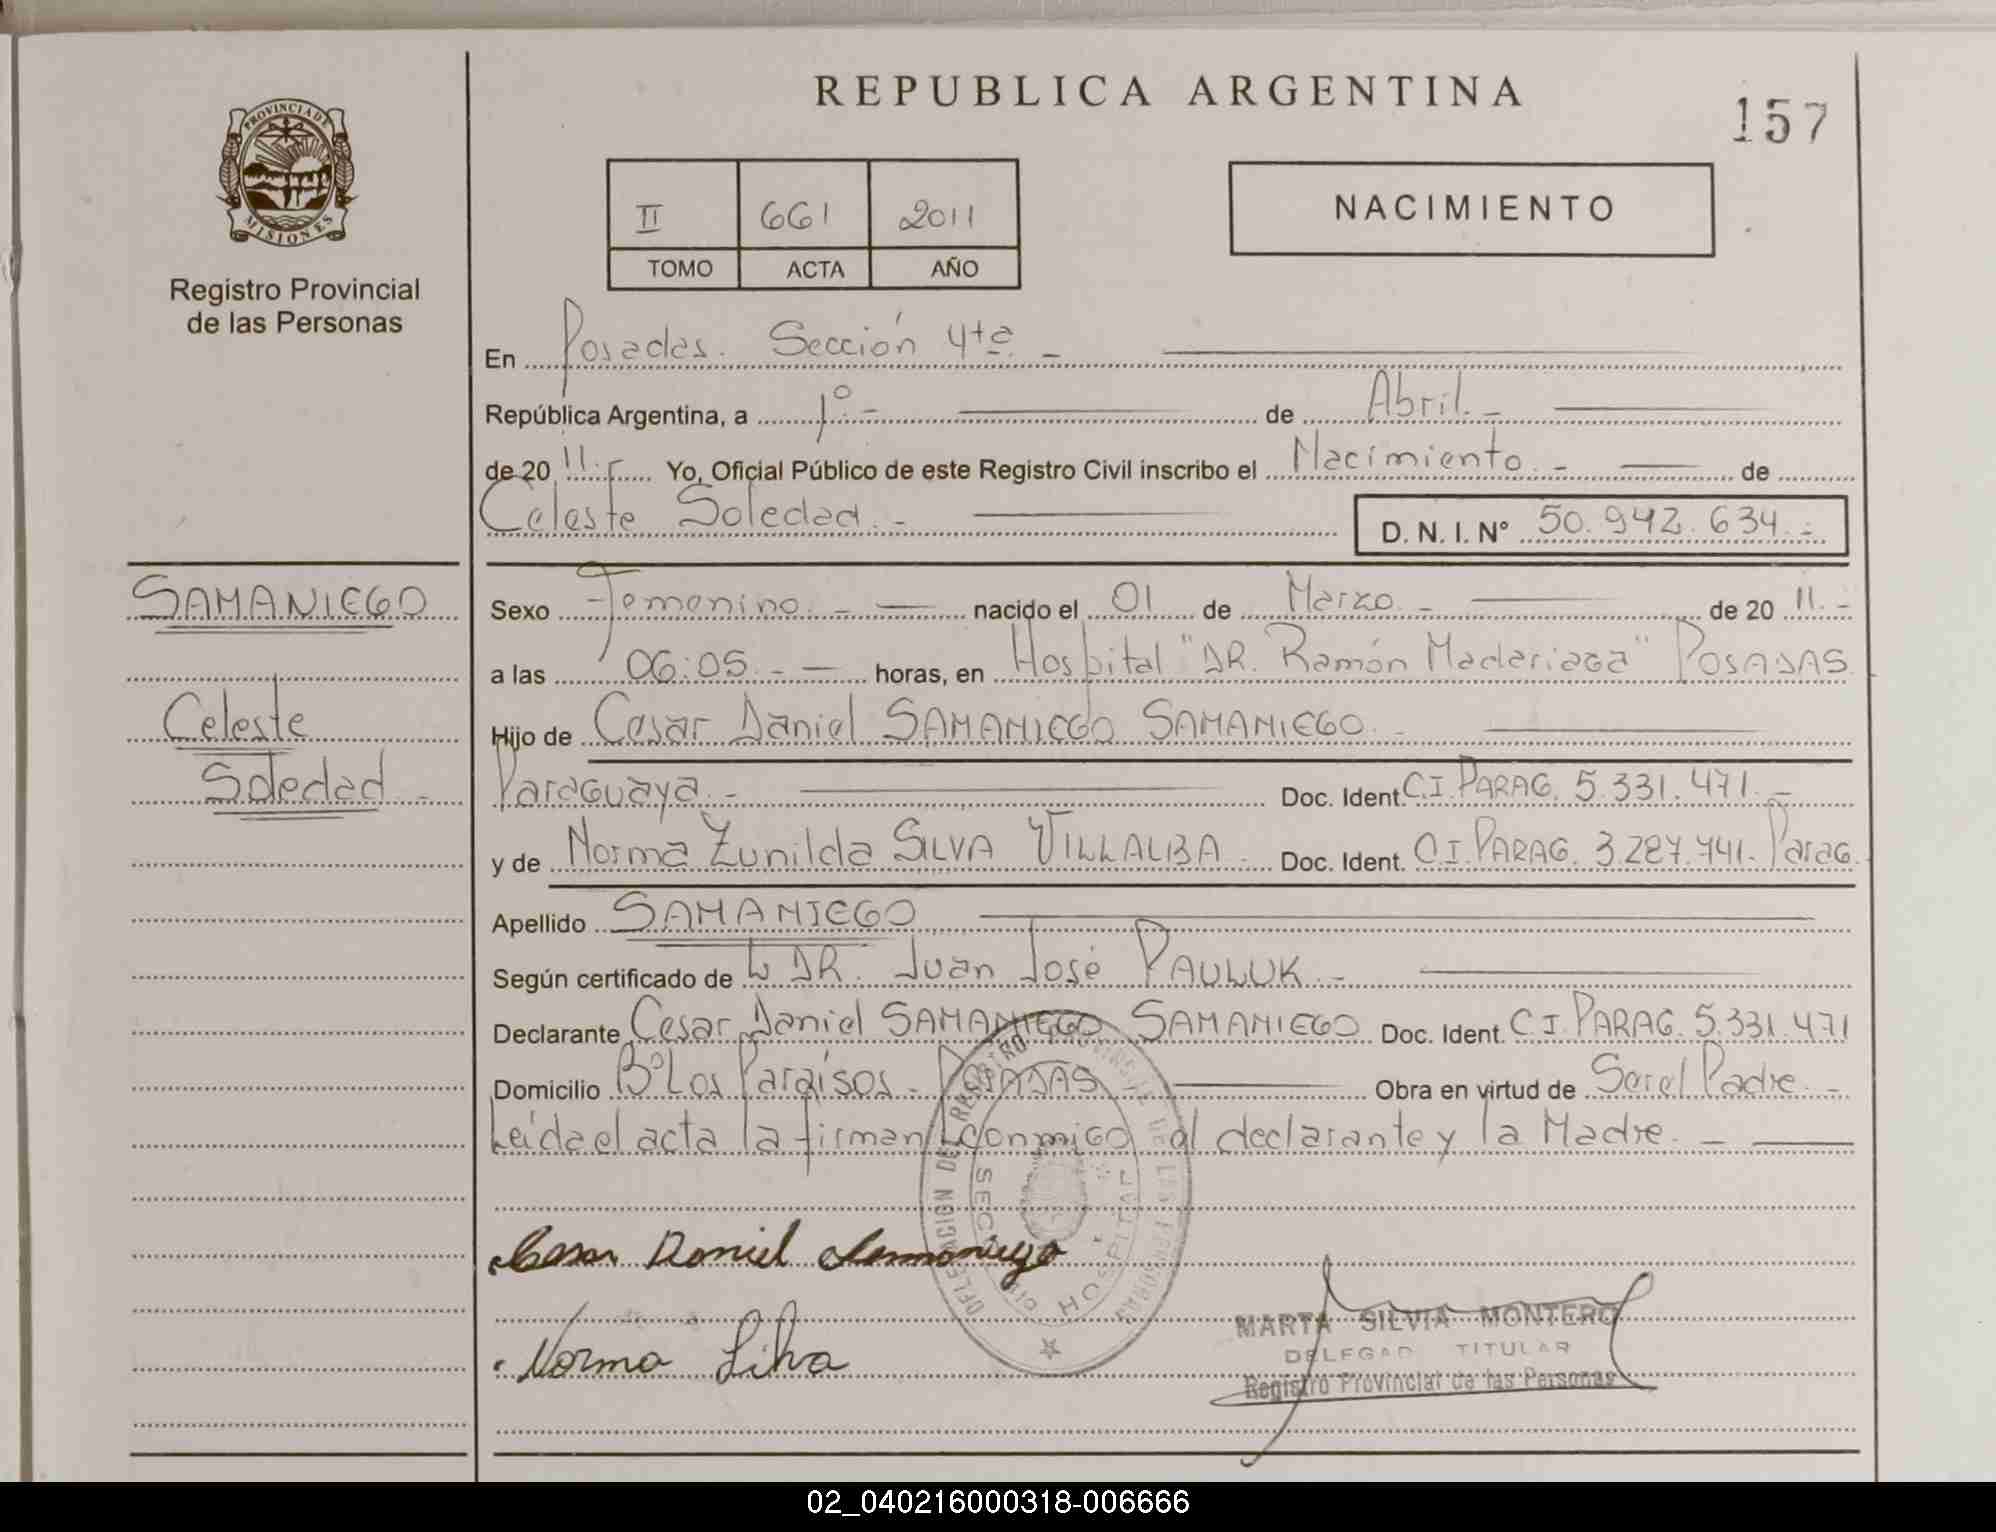 REPUBLICA ARGENTINA
157
PROVINCIA DE
MISIONES
Registro Provincial
de las Personas
II 661 2011
TOMO ACTA AÑO
NACIMIENTO
En Posadas. Sección 4ta. -
República Argentina, a 1º.- de Abril. -
de 20 11.- Yo, Oficial Público de este Registro Civil inscribo el Nacimiento. - de
Celeste Soledad. - D. N. I. Nº 50.942.634.-
SAMANIEGO
Celeste
Soledad -
Sexo Femenino. - nacido el 01 de Marzo. - de 20 11. -
a las 06:05. - horas, en Hospital "DR. Ramón Madariaga" POSADAS
Hijo de Cesar Daniel SAMANIEGO SAMANIEGO. -
Paraguaya. - Doc. Ident. C.I. PARAG. 5.331.471. -
y de Norma Zunilda SILVA VILLALBA. Doc. Ident. C.I. PARAG. 3.287.441. Parag.
Apellido SAMANIEGO
Según certificado de DR. Juan José PAULUK. -
Declarante Cesar Daniel SAMANIEGO SAMANIEGO Doc. Ident. C.I. PARAG. 5.331.471
Domicilio Bº Los Paraísos - POSADAS Obra en virtud de Ser el Padre. -
Leída el acta la firman conmigo el declarante y la Madre. -
DELEGACION DEL REGISTRO PROVINCIAL DE LAS PERSONAS
HOSPITAL
Cesar Daniel Samaniego
Norma Silva
MARTA SILVIA MONTERO
DELEGAD TITULAR
Registro Provincial de las Personas
02_040216000318-006666